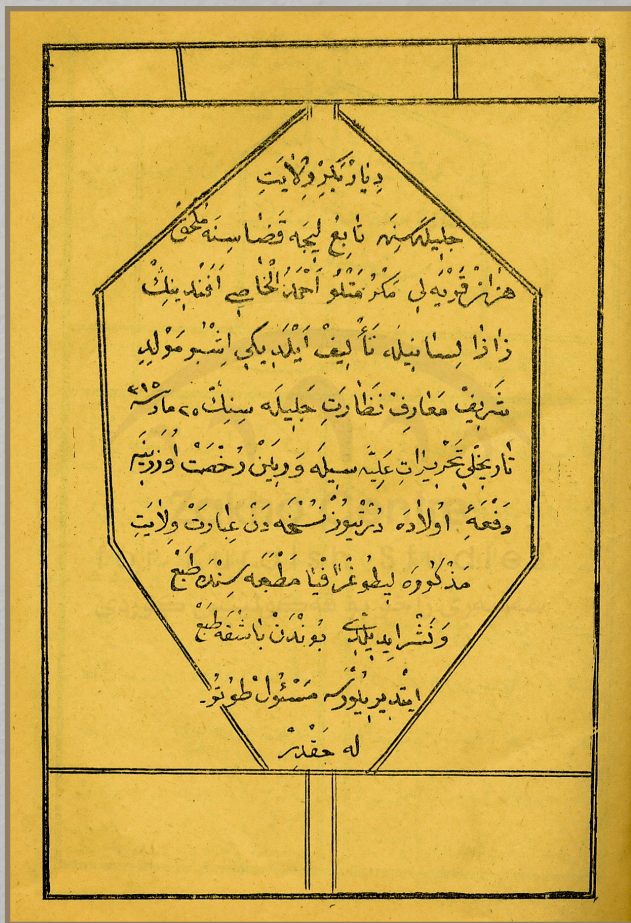 دِيَارْبَكِرْ وِلَايَتِ
جَلِيلَهسِنَه تَابِعْ لِيجَه قَضَاسِنَه مُلْحَقْ
هَزَانْ قَرْيَه لِى مَكْرُمَتْلُو اَحْمَدُ الْخَاصِى اَفَنْدِينِكْ
زَازَا لِسَانِيلَه تَأْلِيفْ اَيْلَدِيكِى اِشْبُو مَوْلِدِ
شَرِيفْ مَعَارِفْ نَظَارَتِ جَلِيلَه سِنِكْ ٢٥ مارت ٣١٥
تَارِيخْلِى تَحْرِيرَاتِ عَلِيَّه سِيلَه وَرِيلَنْ رُخْصَتْ اُوزَرِينَه
دَفْعَهٔ اُولَادَه دُرْتْيُوزْ نُسْخَه دَنْ عِبَارَتْ وِلَايَتِ
مَذْكُورَه لِيطُوغْرَافْيَا مَطْبَعَه سِنْدَه طَبْعْ
وَنَشْرْ ايدِيلْدِى بُونْدَنْ بَاشْقَه طَبْعْ
ايتْدِيرِيلُورْسَه مَسْئُولْ طُوتُو
له جَقْدِرْ